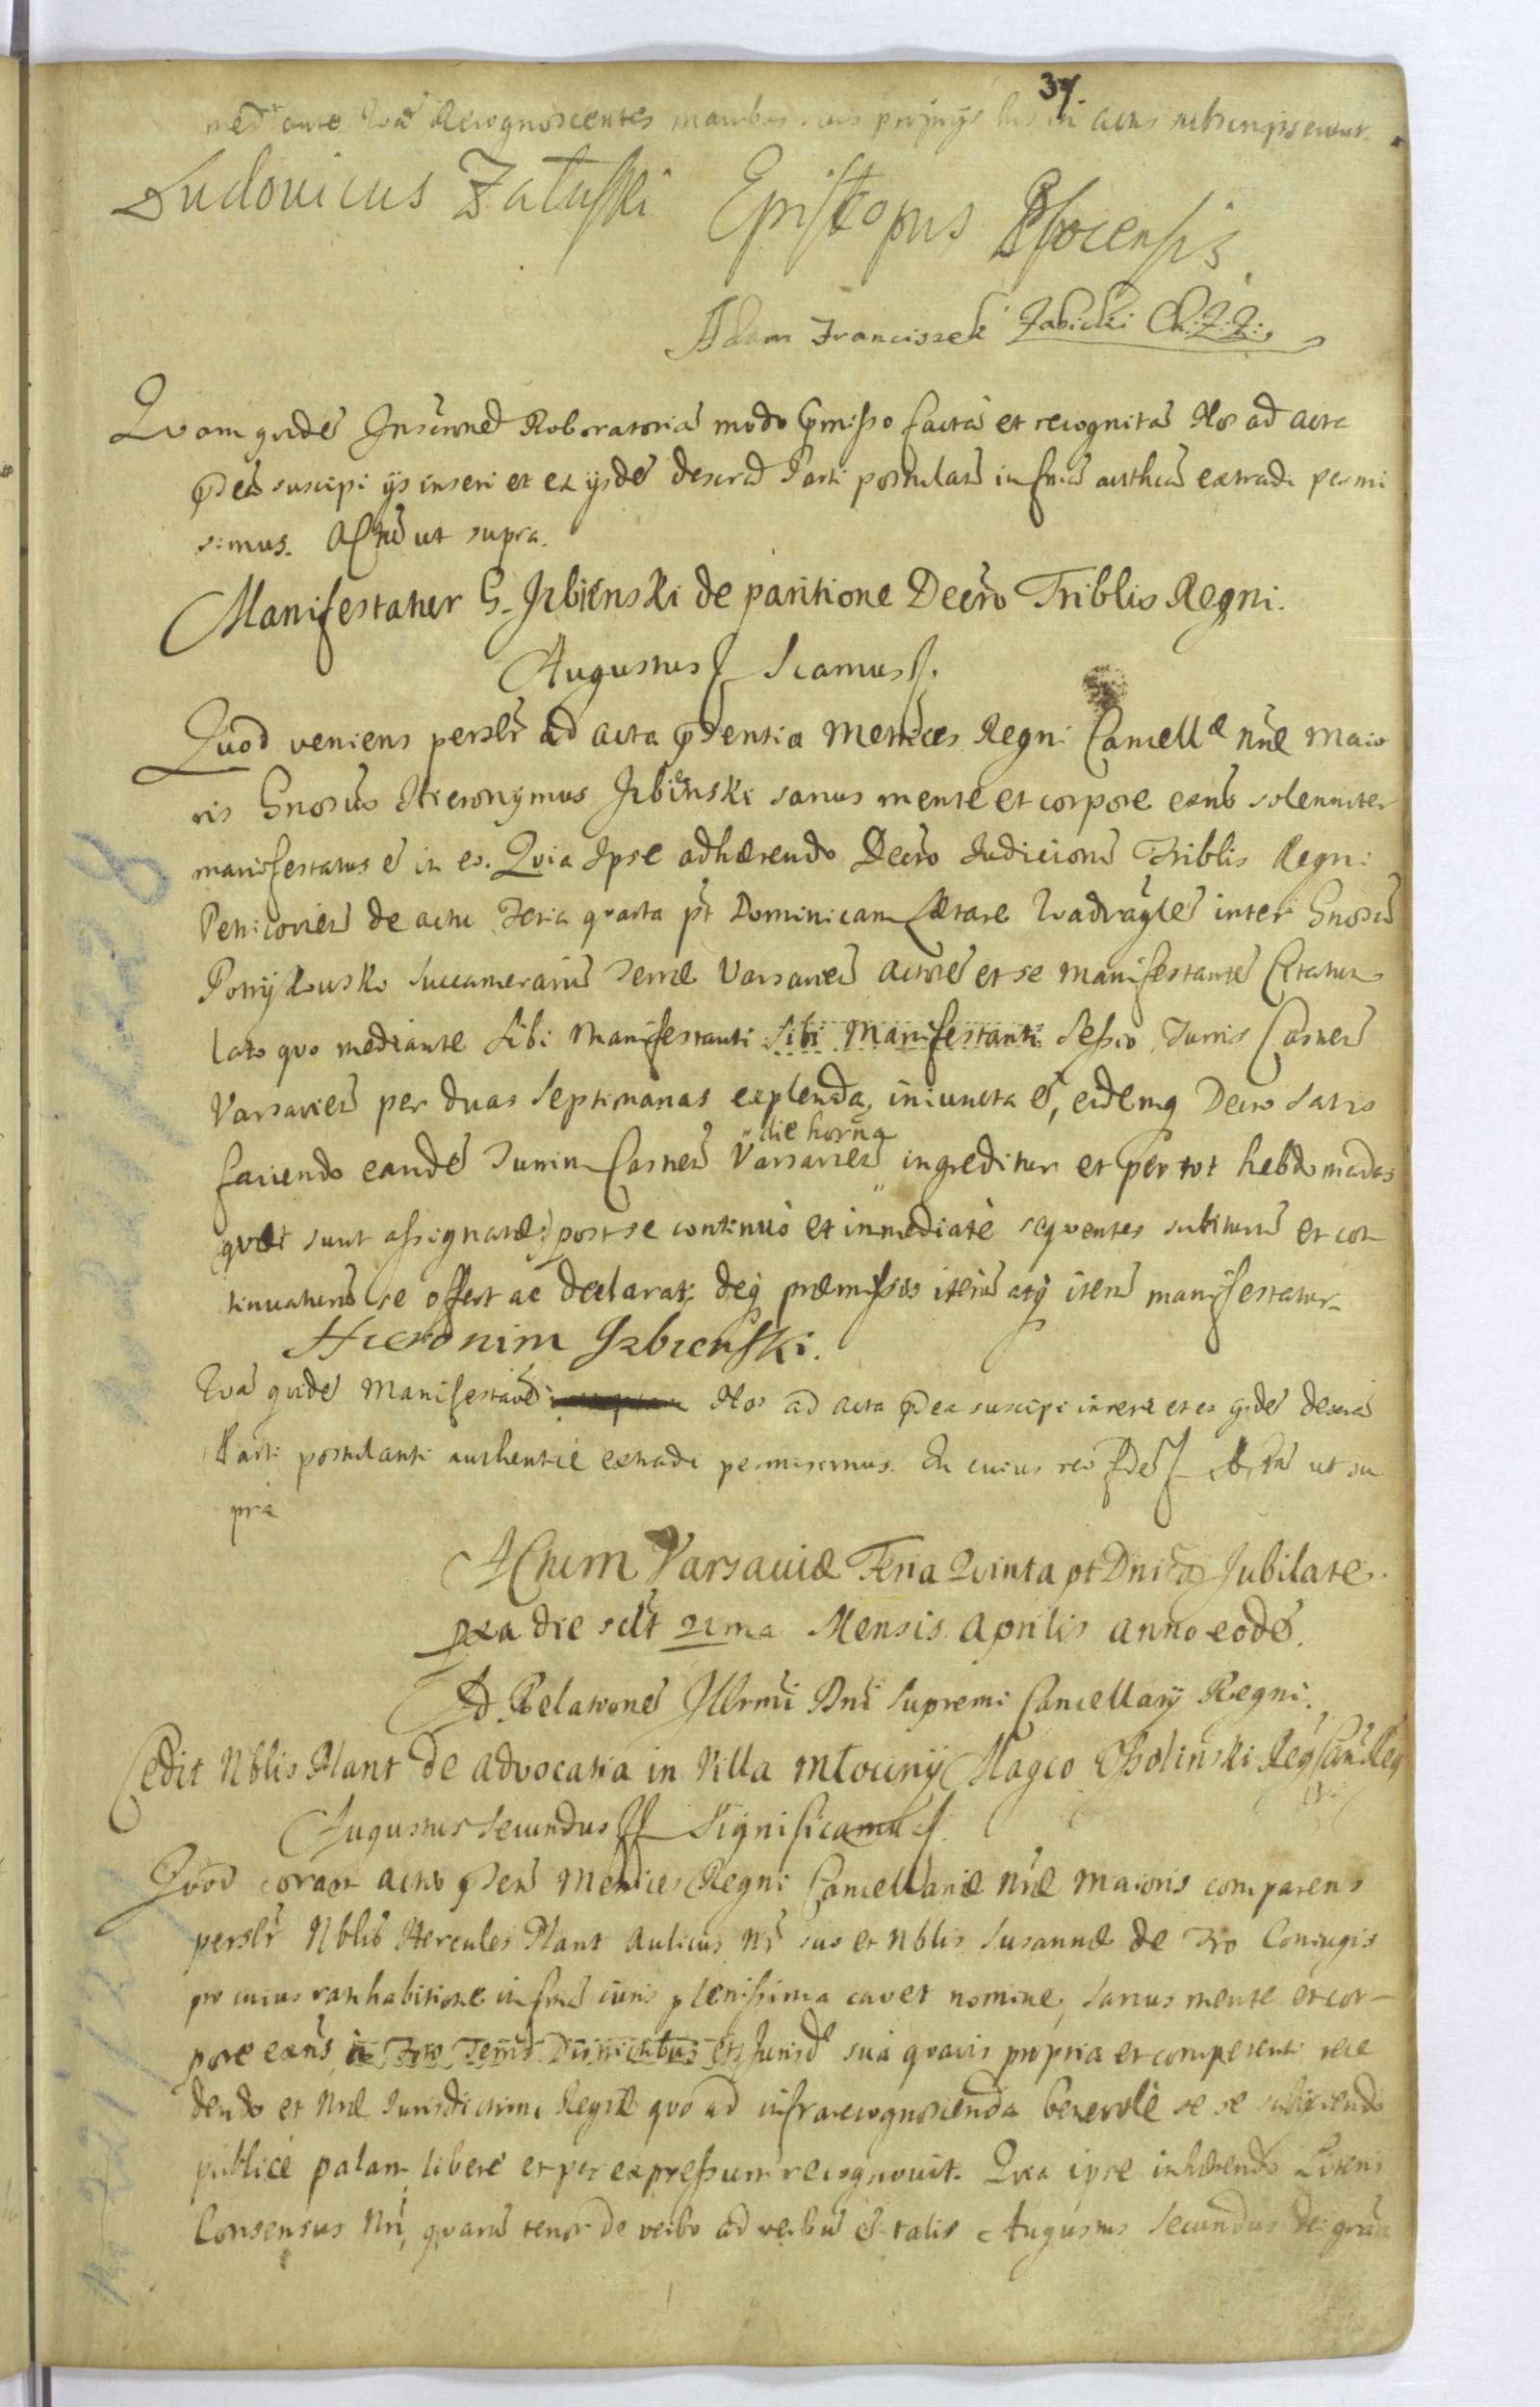 37
mediante Qua Recognoscentes manibus suis proprijs hic in actis subscripserunt.
Ludovicus Załuski Episcopus Plocensis
Adam Franciszek Żabicki Ch: Z: Z:
Quam quidẽ Inscriõnẽ Roboratoriã modo p̃misso factã et recognitã Nos ad acta
p̃ntia suscipi ijs inseri et ex ijsdẽ descrĩ Parti postulañ in formã authcã extradi permi
simus. Actũ ut supra.
Manifestatur G. Jzbienski de paritione Decr̃o Triblis Regni.
Augustus Scamus.
Quod veniens persl̃r ad acta p̃sentia Metrices Regni Cancellæ nr̃æ maio
ris Gnosus Hieronymus Jzbienski sanus mente et corpore exñs solenniter
manifestatus ẽ in eo. Quia Ipse adhærendo Decr̃o Judiciorũ Triblis Regni
Petricovieñ de actu Feria quarta pt̃ Dominicam Lætare Quadrãgleẽ inter Gnosũ
Potrykowski Succamerariũ Terræ Varsavieñ actorẽ et se manifestantẽ Citatum
lato quo mediante Sibi Manifestanti Sibi Manifestanti Sessio Turris Castreñ
Varsavieñ per duas Septimanas explenda, iniuncta ẽ, eidemq Decro satis
die horña
faciendo eandẽ Turrim Castreñ Varsavieñ ingreditur et per tot hebdomadas
quæ sunt assignatæ post se continuò et inmediatè sequentes subiturũ et con
tinuaturũ se offert ac declarat, deq præmissis iterũ atq iterũ manifestatur.
Hieronim Jzbienski.
Quã quidẽ Manifestãõnẽ Nos ad acta p̃ntia suscipi inseri et ex ijsdẽ descrĩ
Parti postulanti authenticè extradi permisimus. In cuius rei fidẽ Actũ ut su
pra
Actum Varsaviæ Feria Quinta pt Dnicã Jubilate
pxa die sclt 21ma Mensis Aprilis anno eodẽ.
Ad Relationẽ Illrmi Dni Supremi Cancellarij Regni.
Cedit Nblis Plant de advocatia in Villa Młociny Magco Ossolinski Reg
Augustus Secundus Significamus.
Quod coram actis p̃senñ Metrices Regni Cancellariæ nr̃æ maioris comparens
persl̃r Nblis Hercules Plant Aulicus Nr̃ suo et Nblis Susannæ de Fro Coniugis
pro cuius ratihabitione in formã iuris plenissima cavet nomine, sanus mente et cor-
pore exñs à Fro Terris Districtibus et Jurisde sua quavis propria et competenti rece
dendo et Nræ Jurisdictioni Regiæ quo ad infrarecognoscenda benevolè se se subijciendo
publicè palam liberè et per expressum recognovit. Quia ipse inhærendo Literis
Consensus Nri, quarũ tenor de verbo ad verbũ ẽ talis Augustus Secundus Dei gratia